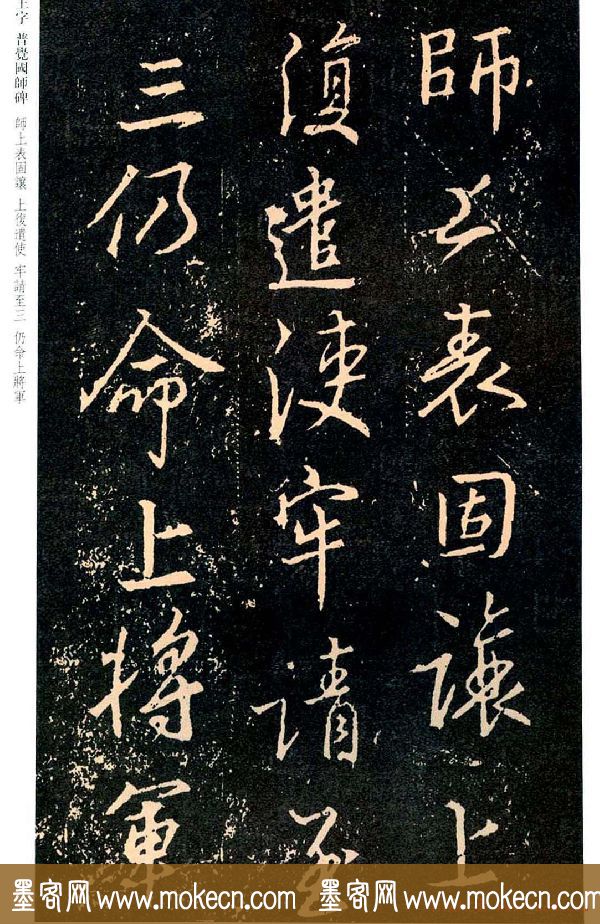 師上表固讓上
復遣使牢請至
三仍命上將軍
王字 普覺國師碑 師上表固讓 上復遣使 牢請至三 仍命上將軍
墨客网 www.mokecn.com 墨客网 www.mokecn.com